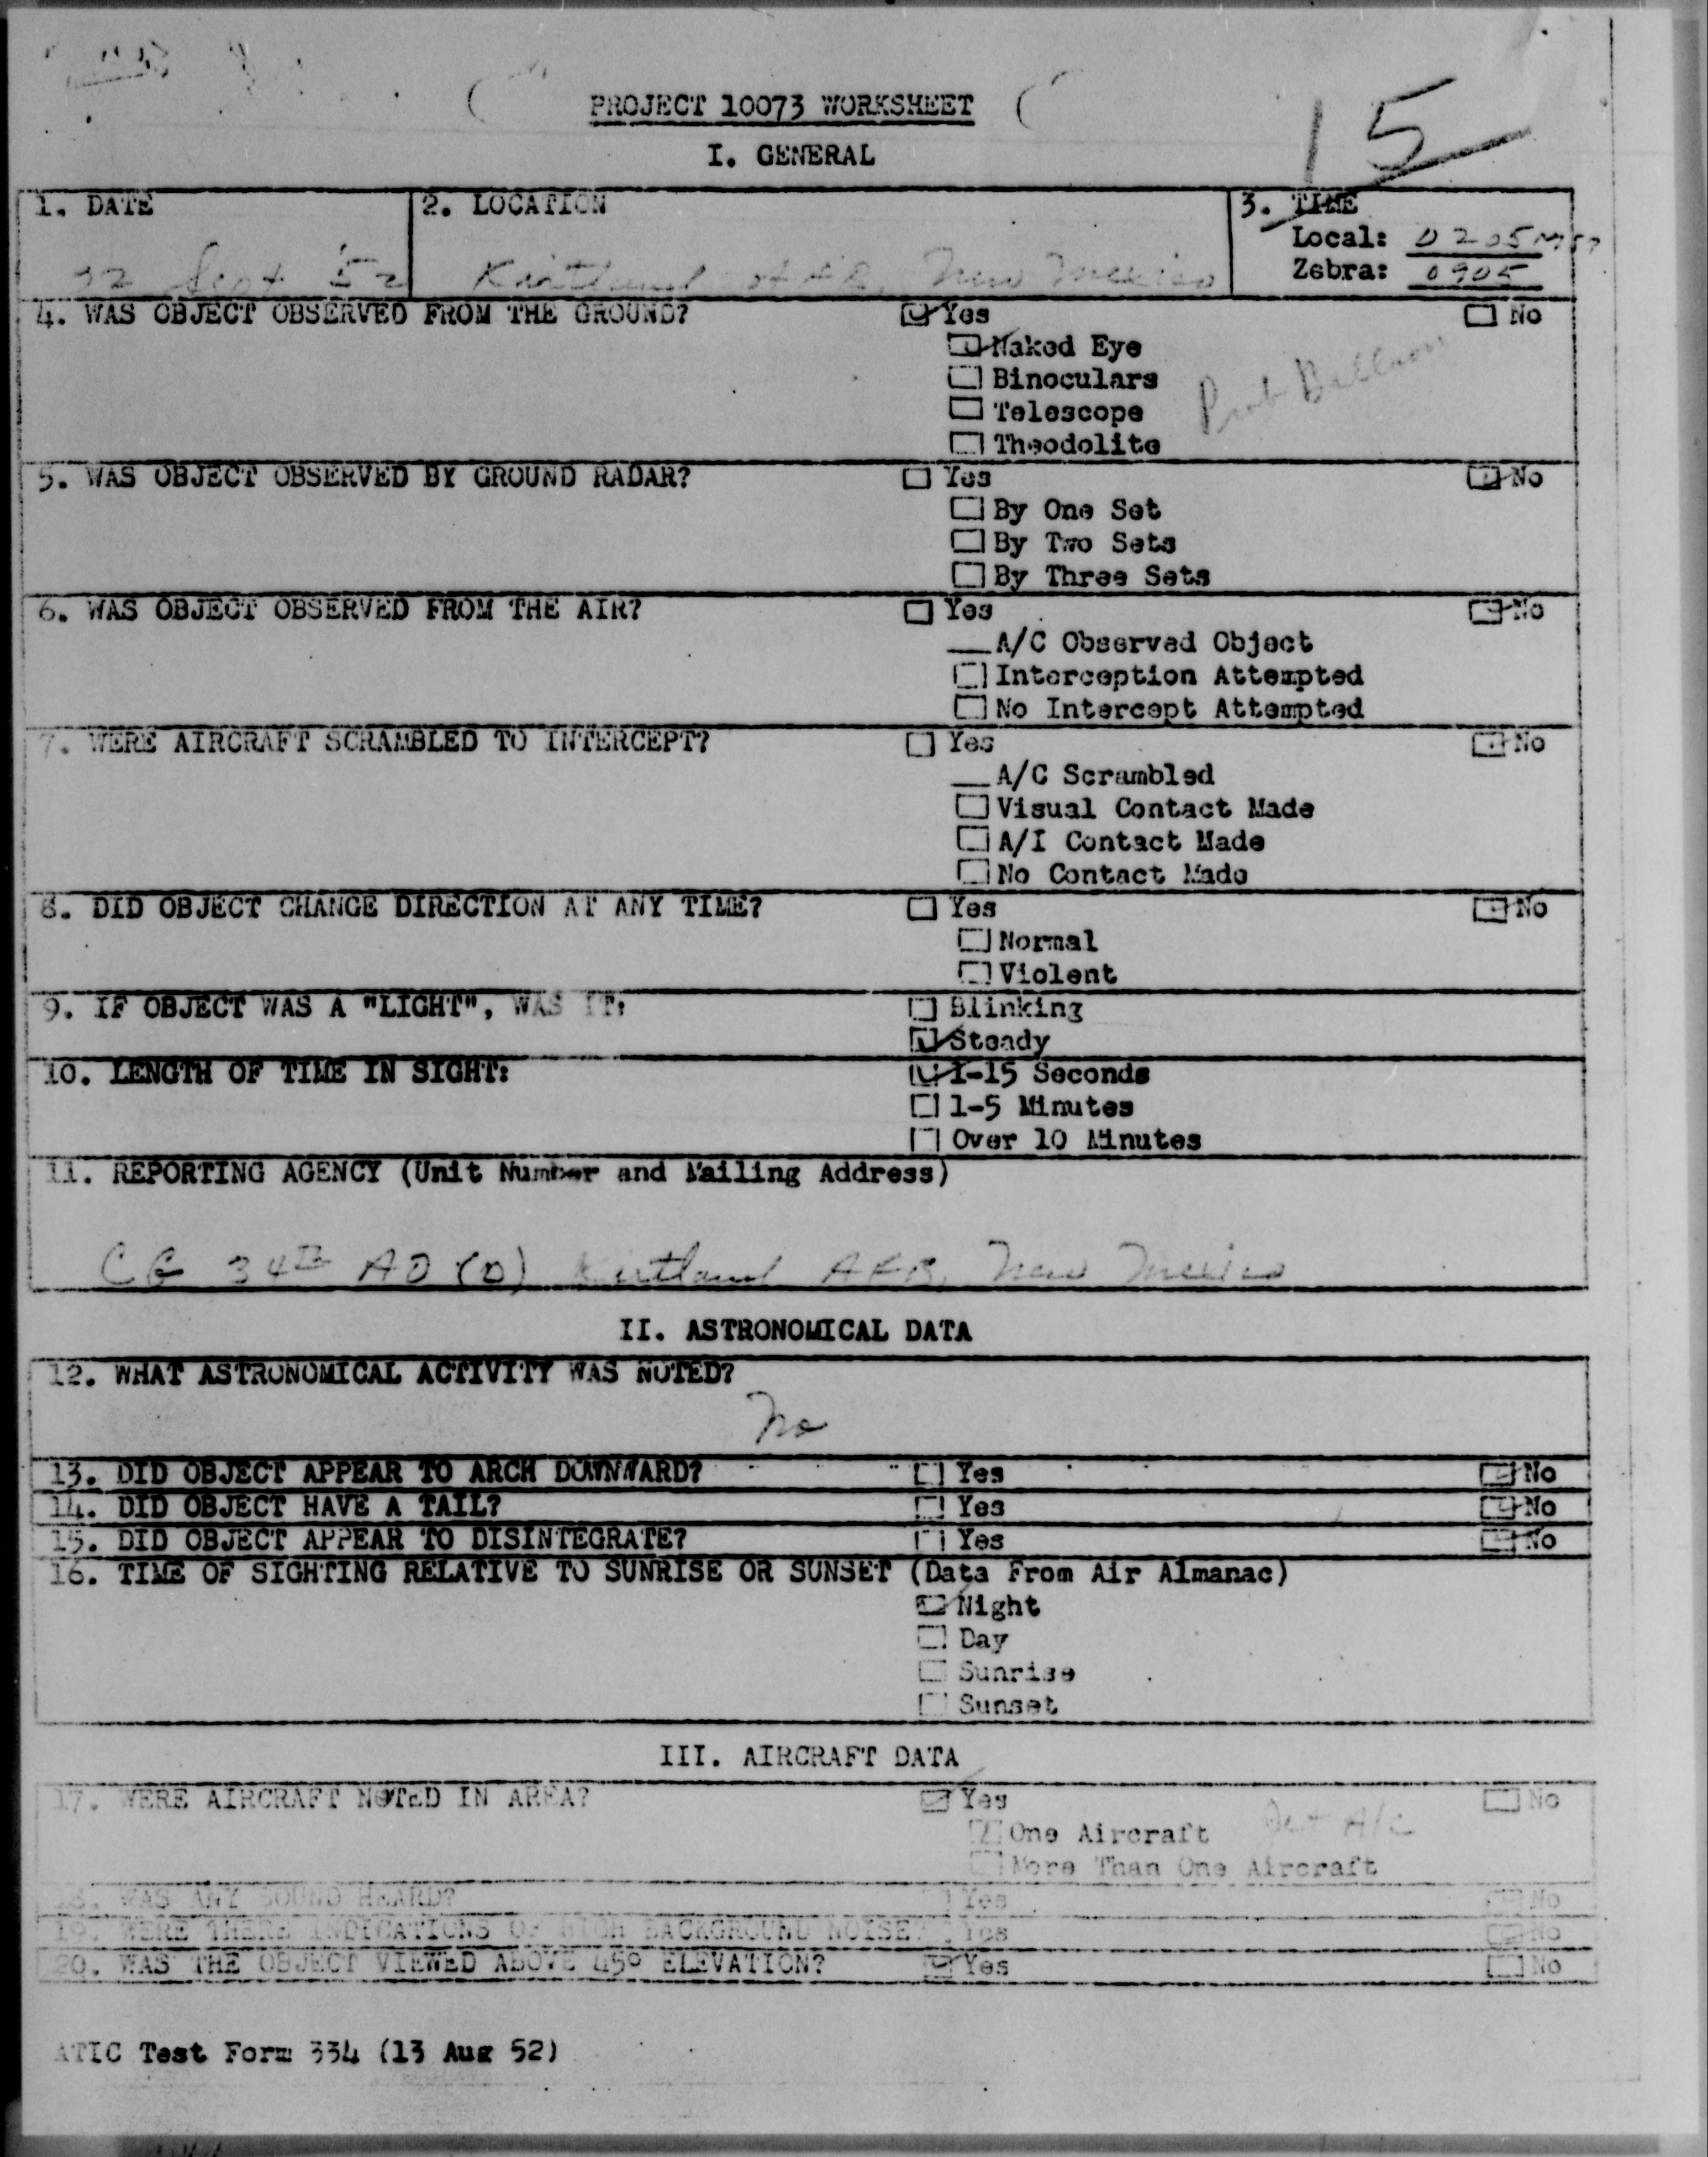 PROJECT 10073 WORKSHEET
15
I. GENERAL
1. DATE
22 Sept 52
2. LOCATION
Kirtland AFB, New Mexico
3. TIME
Local: 0205 MST
Zebra: 0905
4. WAS OBJECT OBSERVED FROM THE GROUND? Yes No
Naked Eye
Binoculars
Prob Balloon
Telescope
Theodolite
5. WAS OBJECT OBSERVED BY GROUND RADAR? Yes No
By One Set
By Two Sets
By Three Sets
6. WAS OBJECT OBSERVED FROM THE AIR? Yes No
A/C Observed Object
Interception Attempted
No Intercept Attempted
7. WERE AIRCRAFT SCRAMBLED TO INTERCEPT? Yes No
A/C Scrambled
Visual Contact Made
A/I Contact Made
No Contact Made
8. DID OBJECT CHANGE DIRECTION AT ANY TIME? Yes No
Normal
Violent
9. IF OBJECT WAS A "LIGHT", WAS IT: Blinking
Steady
10. LENGTH OF TIME IN SIGHT: 1-15 Seconds
1-5 Minutes
Over 10 Minutes
11. REPORTING AGENCY (Unit Number and Mailing Address)
CG 34th AD (D) Kirtland AFB, New Mexico
II. ASTRONOMICAL DATA
12. WHAT ASTRONOMICAL ACTIVITY WAS NOTED?
No
13. DID OBJECT APPEAR TO ARCH DOWNWARD? Yes No
14. DID OBJECT HAVE A TAIL? Yes No
15. DID OBJECT APPEAR TO DISINTEGRATE? Yes No
16. TIME OF SIGHTING RELATIVE TO SUNRISE OR SUNSET (Data From Air Almanac)
Night
Day
Sunrise
Sunset
III. AIRCRAFT DATA
17. WERE AIRCRAFT NOTED IN AREA? Yes No
One Aircraft Jet A/C
More Than One Aircraft
18. WAS ANY SOUND HEARD? Yes No
19. WERE THERE INDICATIONS OF HIGH BACKGROUND NOISE? Yes No
20. WAS THE OBJECT VIEWED ABOVE 45° ELEVATION? Yes No
ATIC Test Form 334 (13 Aug 52)